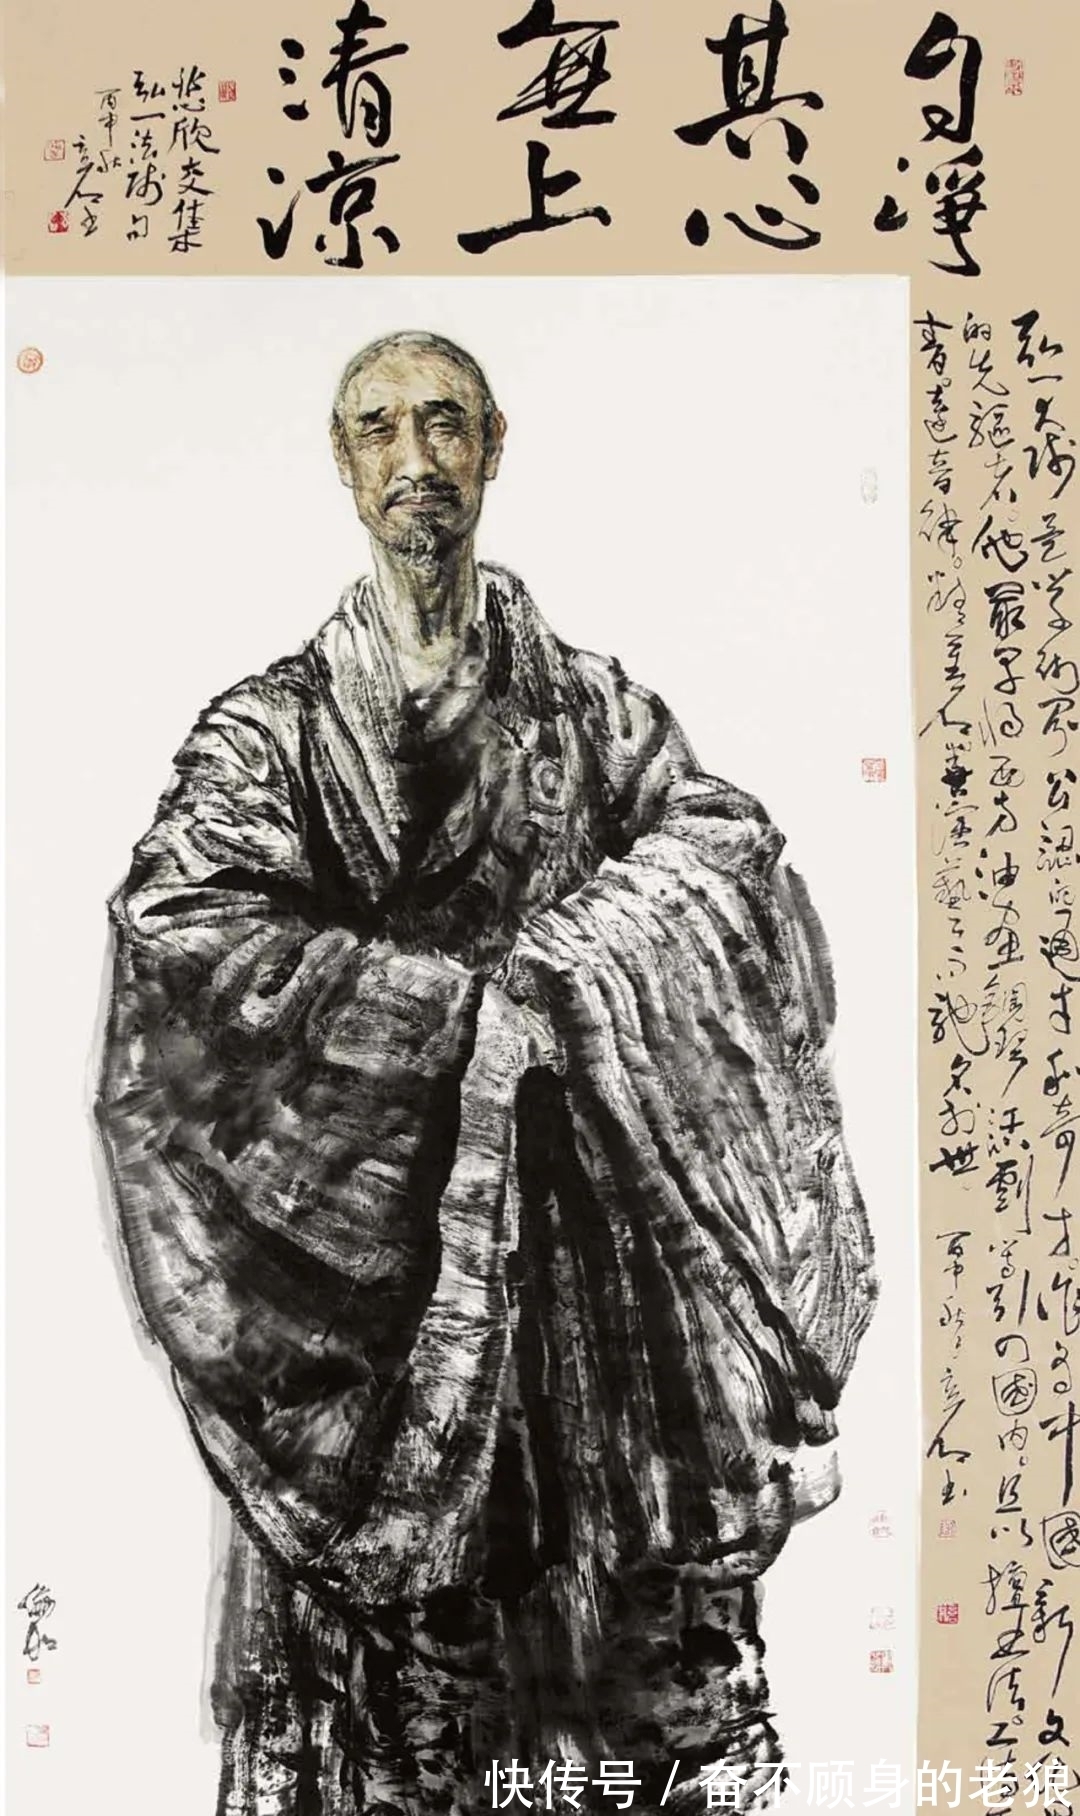 自淨
其心
無上
清涼
悲欣交集
弘一法师句
丙申秋
弘一大师是学術界公認的通才和奇才。作為中國新文化
的先驅者。他最早将西方油畫、鋼琴、话劇等引入國内。且以擅書法。工詩
青。達音律。精金石。善演藝而馳名於世
丙申秋
快传号 / 奋不顾身的老狼